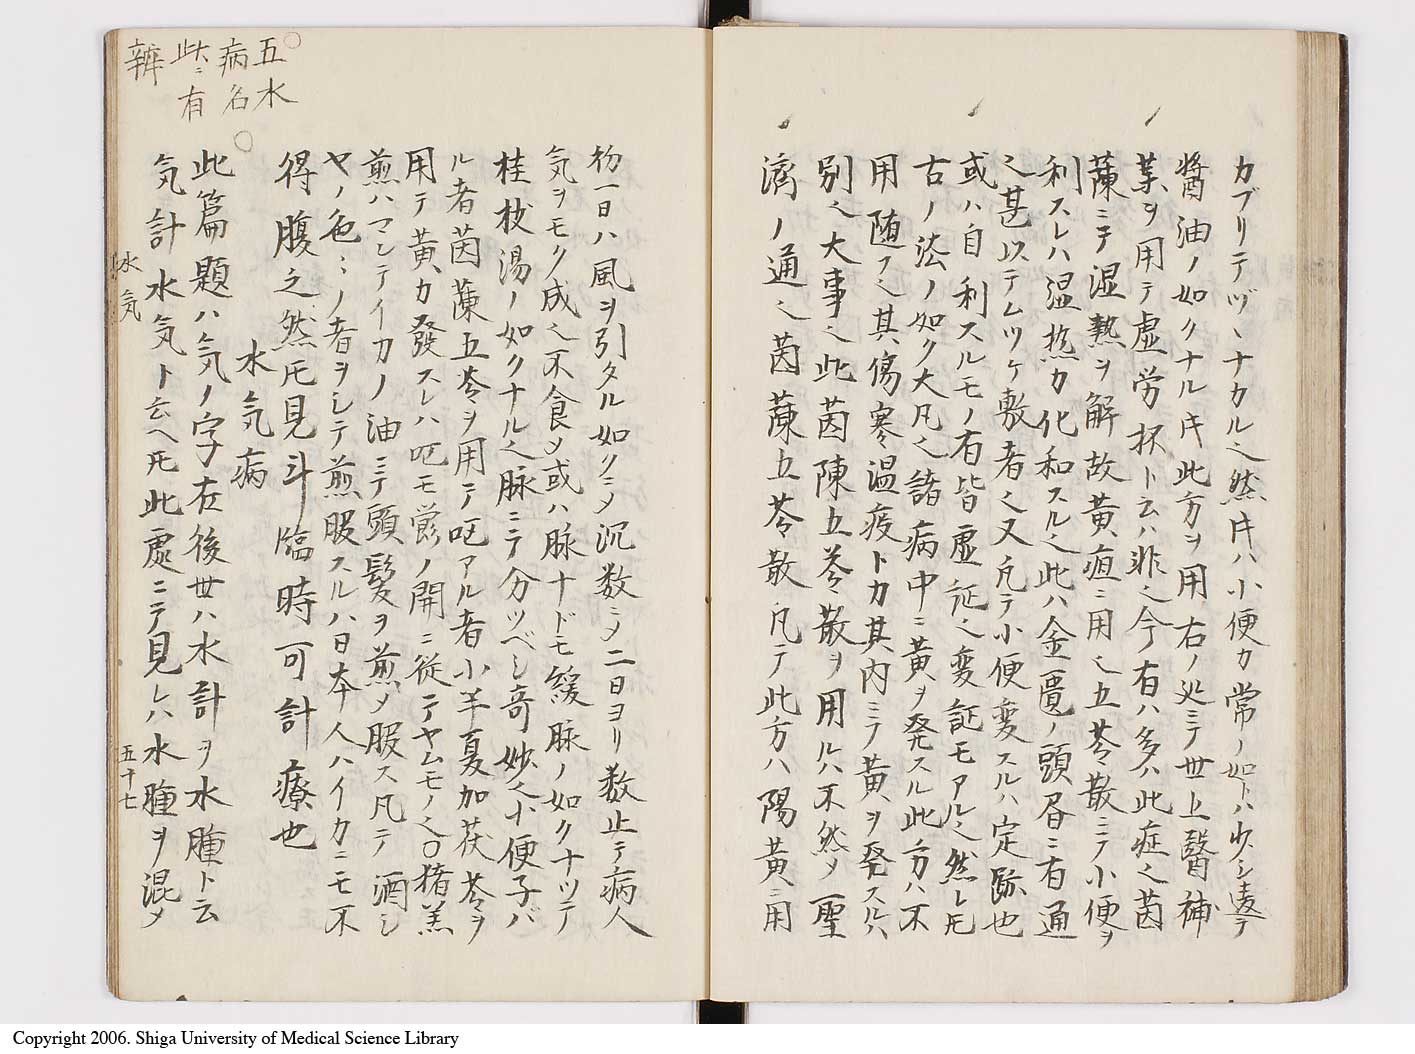 カブリテヅヽナカル也然圧ハ小便カ常ノ如トハ少シ違テ
醬油ノ如クナル圧此方ヲ用右ノ処ニテ世上醫補
藥ヲ用テ虚労杯ト云ハ非也今有ハ多ハ此症也茵
蔯ニテ湿熱ヲ解故黄疸ニ用也五苓散ニテ小便ヲ
利スレハ湿热カ化和スル也此ハ金匱ノ頭眉ニ有通
也甚以テムツケ敷者也又凡テ小便変スルハ定跡也
或ハ自利スルモノ有皆虚証也変証モアル也然レ𪜈
古ノ法ノ如ク大凡也諸病中ニ黄ヲ発スル此方ハ不
用随フ也其傷寒温疫トカ其内ニテ黄ヲ発スルハ
別也大事也此茵陳五苓散ヲ用ルハ不然メ聖
濟ノ通也茵蔯五苓散凡テ此方ハ陽黄ニ用
扮一日ハ風ヲ引タル如クニメ沉数ニメ二日ヨリ数止テ病人
気ヲモク成也不食メ或ハ脉十ドモ緩脉ノ如クナツテ
桂枝湯ノ如クナル也脉ニテ分ツベシ奇妙也小便子バ
ル者茵蔯五苓ヲ用テ呕アル者小半夏加茯苓ヲ
用テ黄カ發スレハ呕モ鬱ノ開ニ從テヤムモノ也〇猪羔
煎ハマシテイカノ油ニテ頭髮ヲ煎メ服ス凡テ酒シ
ヤノ色〻ノ者ヲシテ煎服スルハ日本人ハイカニモ不
得腹之然𪜈見斗臨時可計療也
水気病
此篇題ハ気ノ字在後世ハ水計ヲ水腫ト云
気計水気ト云ヘ𪜈此處ニテ見レハ水腫ヲ混メ
五水
病名
此ニ有
辨
水気
五十七
Copyright 2006. Shiga University of Medical Science Library